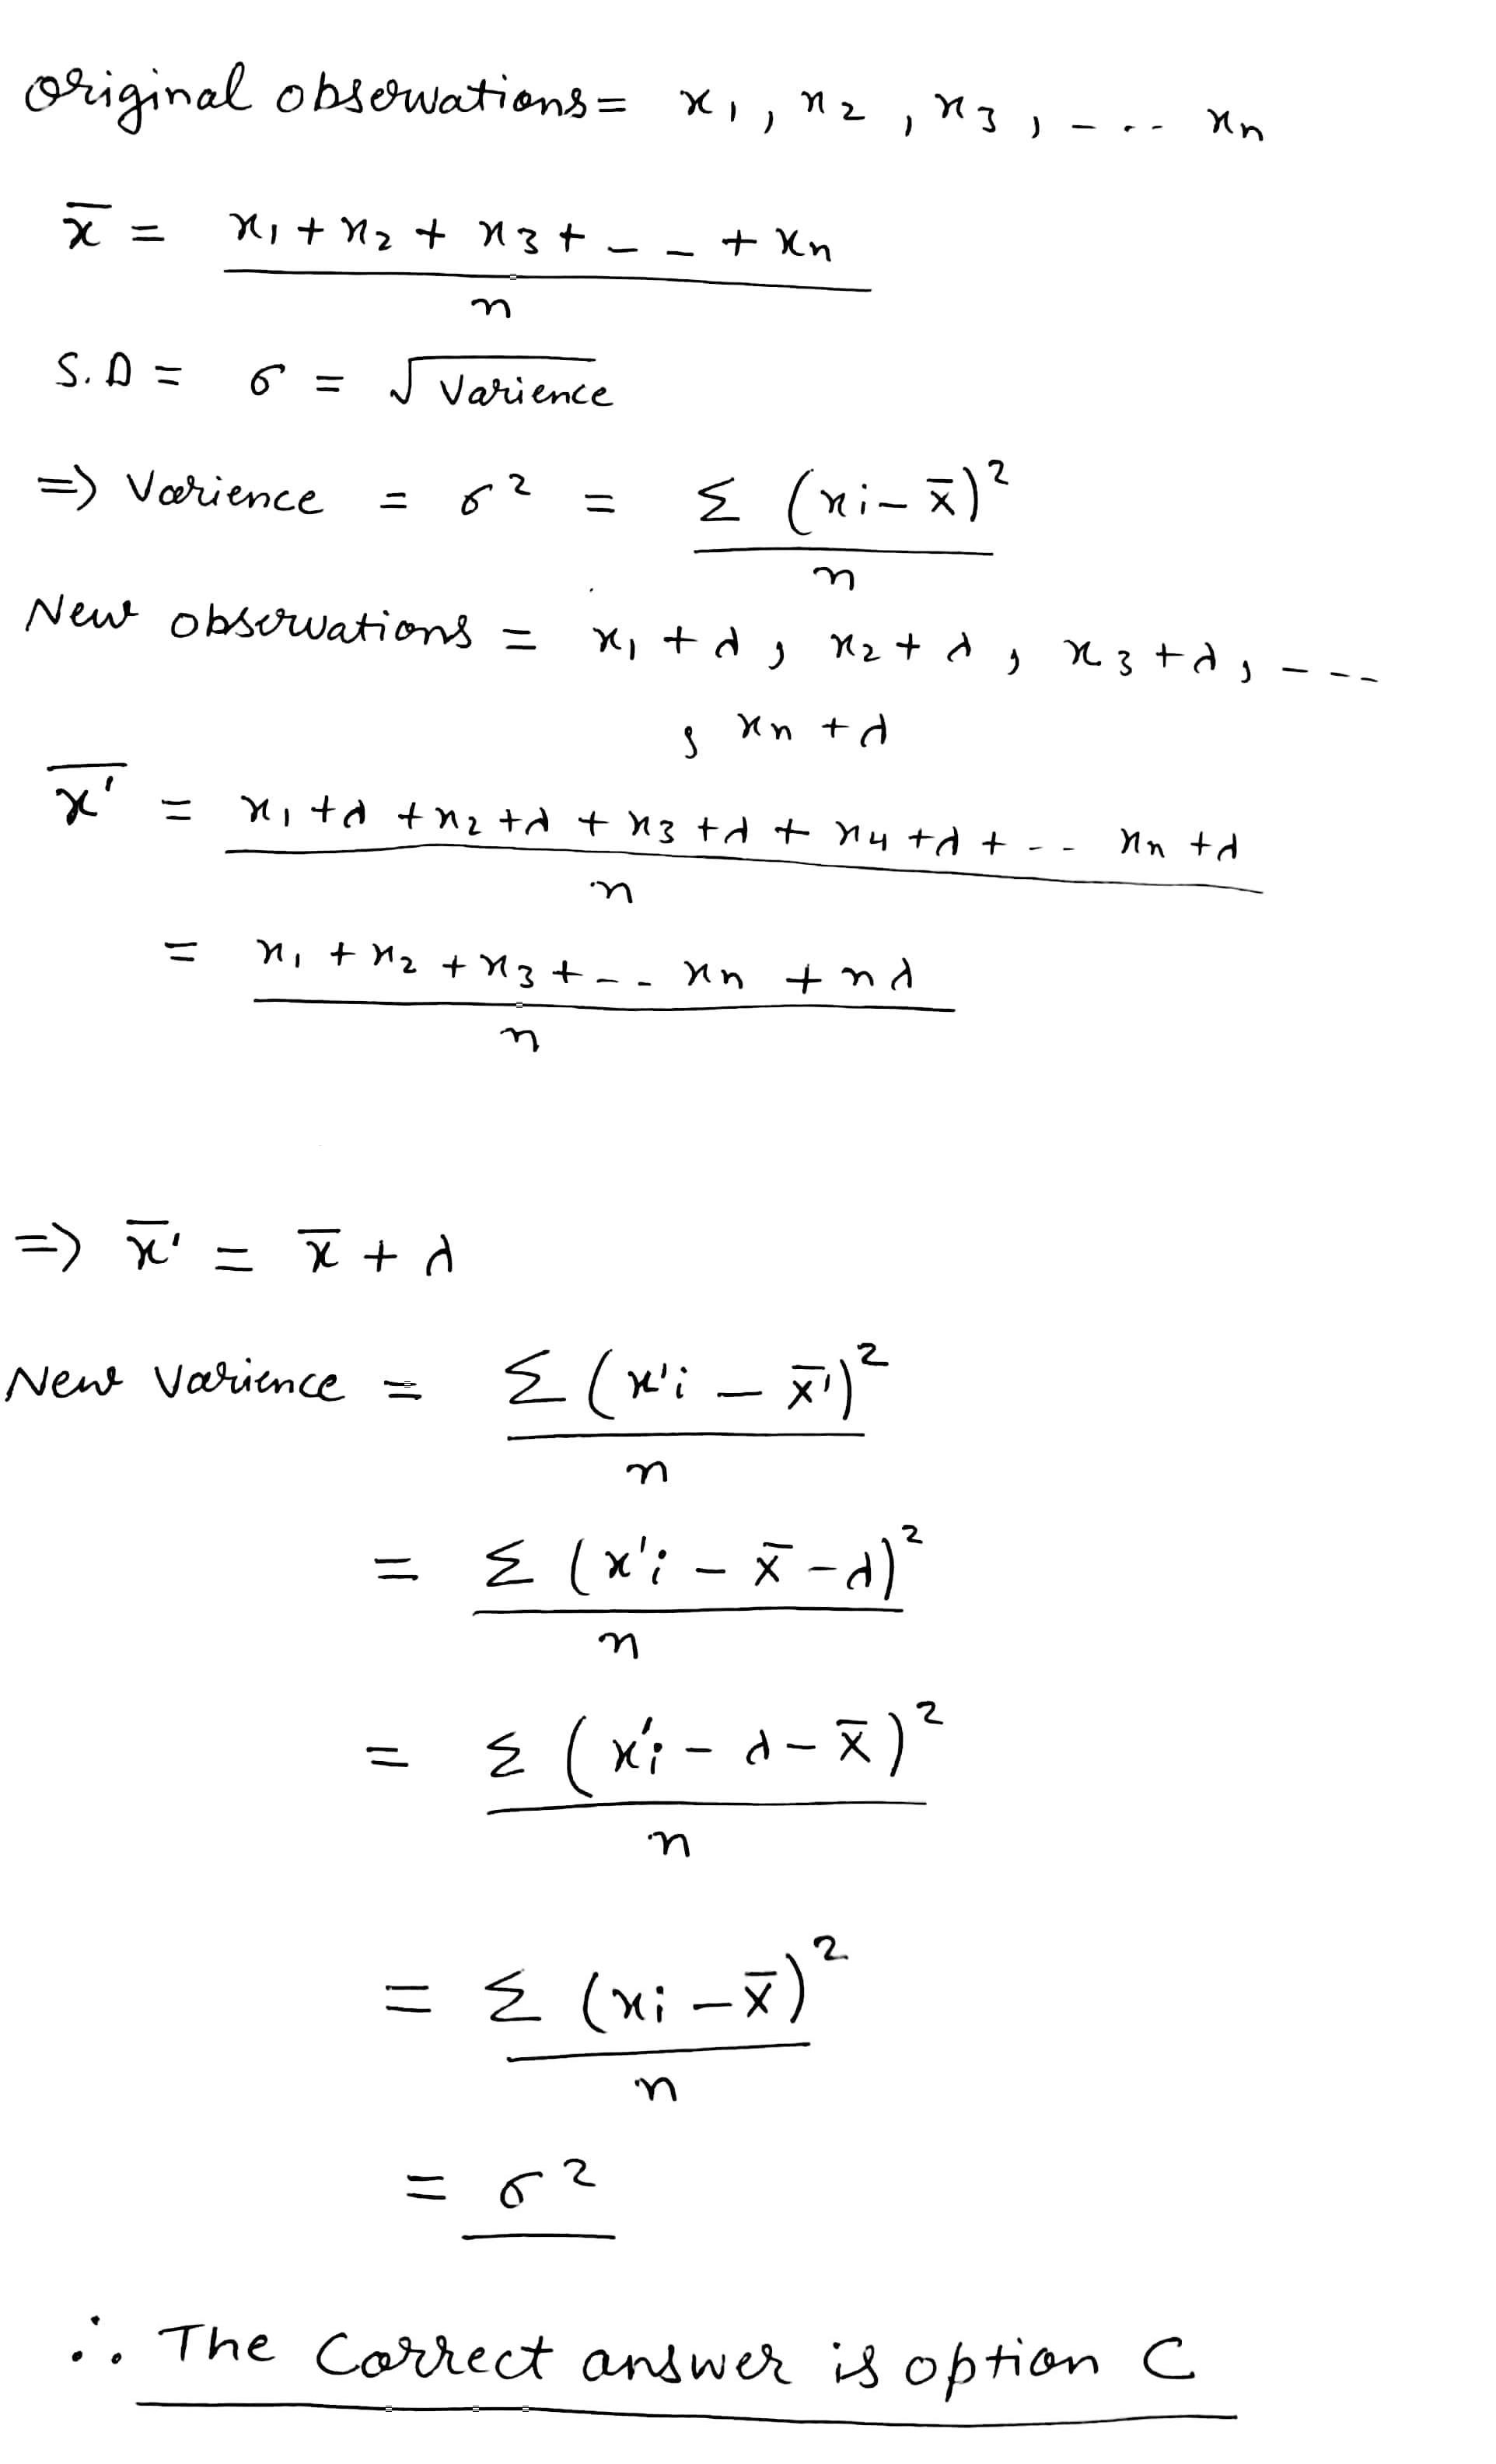 original observations = x₁, x₂, x₃, - - - - xₙ
x̄ = x₁ + x₂ + x₃ + - - - + xₙ
n
S.D = σ = √Varience
=> Varience = σ² = Σ (xi - x̄)²
n
New observations = x₁ + λ, x₂ + λ, x₃ + λ, - - - -
, xₙ + λ
x̄' = x₁ + λ + x₂ + λ + x₃ + λ + x₄ + λ + - - xₙ + λ
n
= x₁ + x₂ + x₃ + - - xₙ + nλ
n
=> x̄' = x̄ + λ
New Varience = Σ (x'i - x̄')²
n
= Σ (x'i - x̄ - λ)²
n
= Σ (x'i - λ - x̄)²
n
= Σ (xi - x̄)²
n
= σ²
∴ The Correct answer is option C